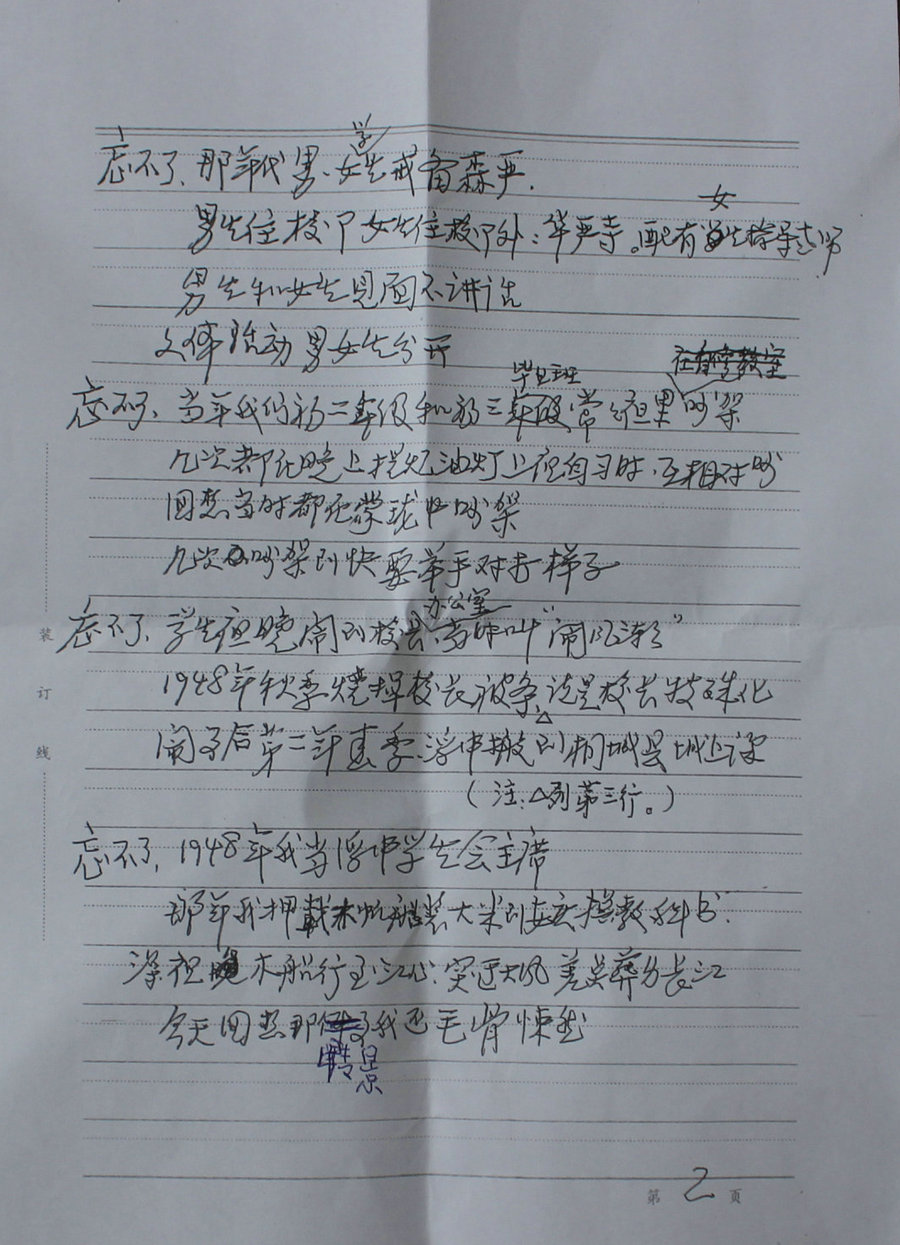 忘不了、那年代男、女学生戒备森严.
男生住校内女生住校内外:华严寺。配有女生指导老师
男生和女生见面不讲话
文体活动男女生分开
忘不了、当年我们初二年级和初三年级毕业班常在夜里吵架
几次都在晚上提煤油灯上夜自习时,互相对吵
回想当时都在朦胧中吵架
几次吵架到快要举手对打梯子
忘不了、学生夜晚闹到校长办公室,当时叫“闹风潮”
1948年秋季烧掉校长被条,说是校长特殊化
闹了后第二年春季,浮中搬到桐城县城上课
(注:△到第三行。)
忘不了,1948年我当浮中学生会主席
那年我押载木帆船装大米到安庆换教科书.
深夜木船行至江心:突遇大风差点葬身长江
今天回想那情景我还毛骨悚然
装
订
线
第 2 页